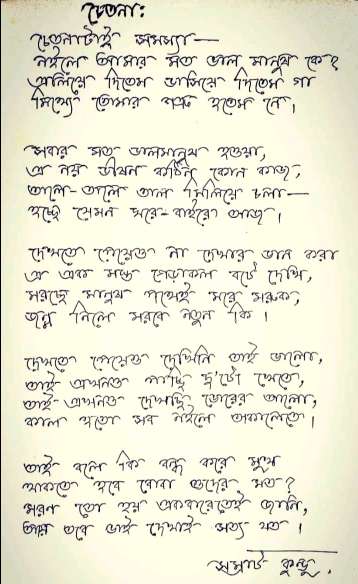 চেতনা:
চেতনাটাই সমস্যা—
নইলে আমার মত ভাল মানুষ কে?
এলিয়ে দিতেম ভাসিয়ে দিতেম গা
মিথ্যে তোমার শত্রু হতেম নে।
সবার মত ভালমানুষ হওয়া,
এ নয় ভীষন কঠিন কোন কাজ,
তালে-তালে তাল মিলিয়ে চলা—
হচ্ছে যেমন ঘরে-বাইরে আজ।
দেখতে পেয়েও না দেখার ভান করা
এ এক মস্ত গেড়াকল বটে দেখি,
মরছে মানুষ পথেই মরে মরুক,
জন্ম নিলে মরবে নতুন কি।
দেখতে পেয়েও দেখিনি তাই ভালো,
তাই এখনও পাচ্ছি দু'টো খেতে,
তাই এখনও দেখছি ভোরের আলো,
কাল হতো সব নইলে অকালেতে।
তাই বলে কি বন্ধ করে মুখ
থাকতে হবে বোবা ওদের মত?
মরণ তো হয় একবারেতেই জানি,
তবে ভাই দেখাই সত্য যত।
সম্রাট কুন্ডু.